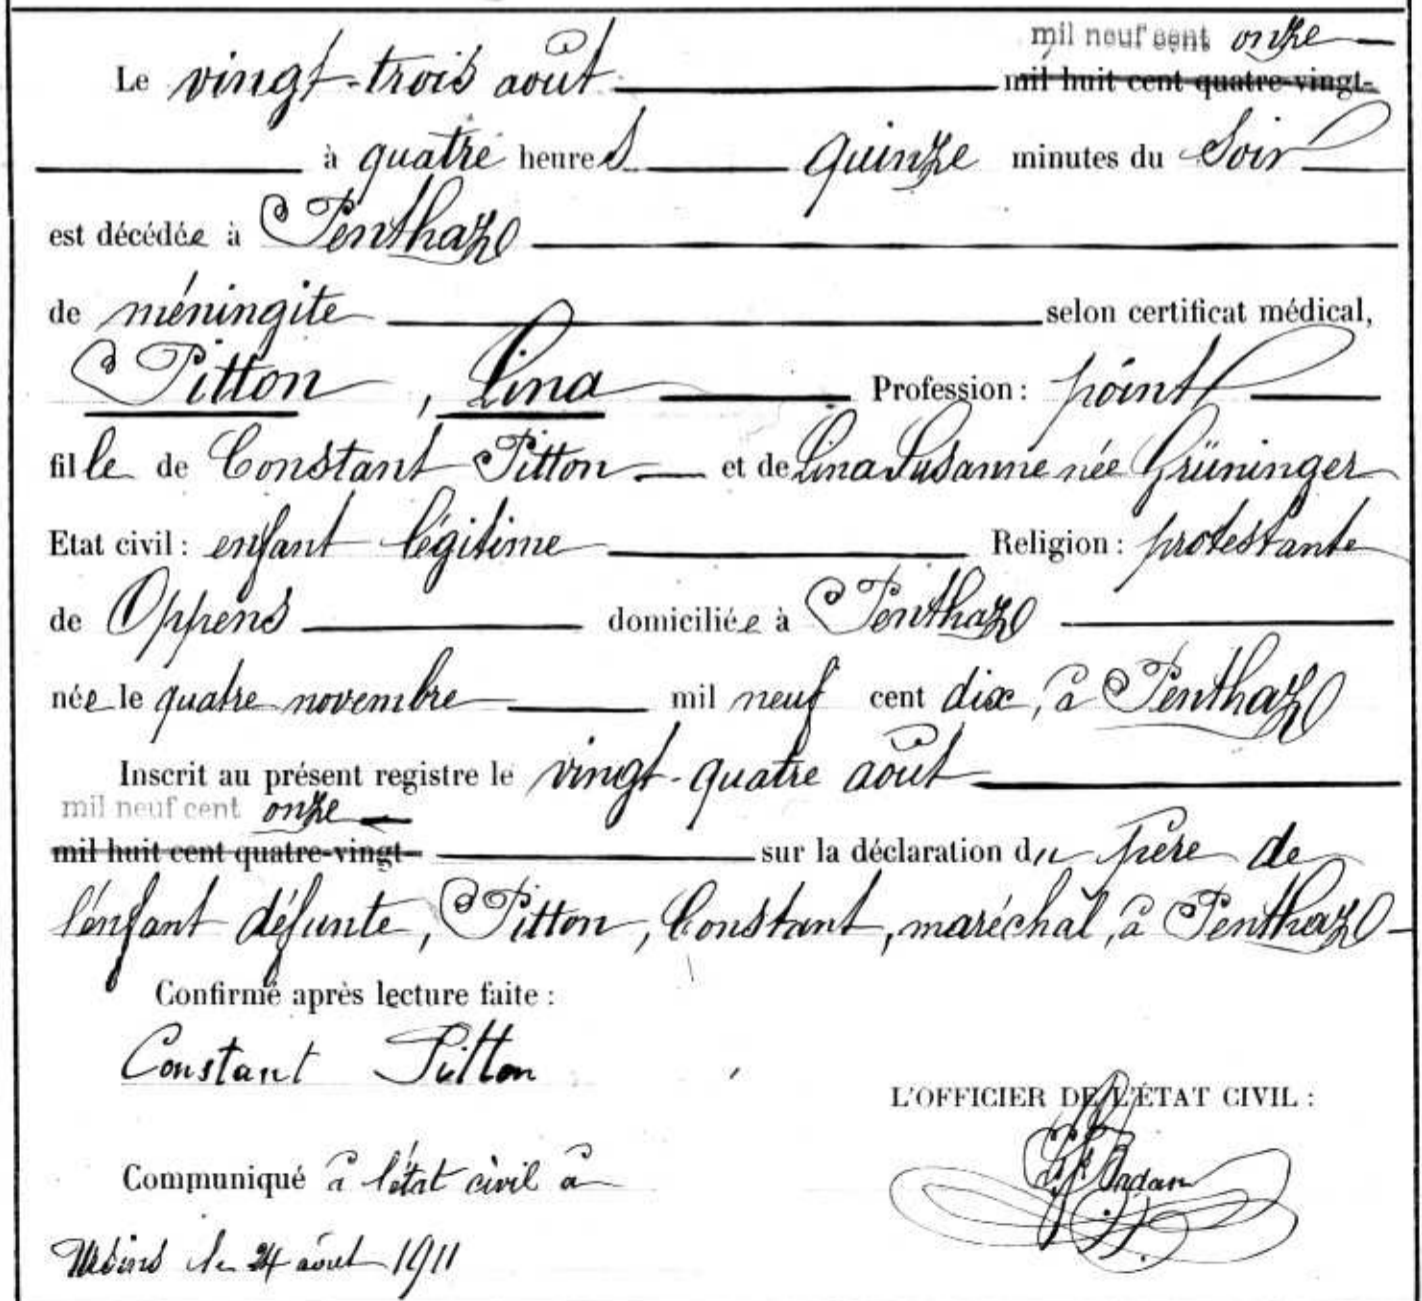 mil neuf cent onze
Le vingt-trois août mil huit cent quatre-vingt-
à quatre heures quinze minutes du soir
est décédée à Penthaz
de méningite selon certificat médical,
Pitton, Lina Profession: point
fille de Constant Pitton et de Lina Susanne née Grüninger
Etat civil: enfant légitime Religion: protestante
de Oppens domiciliée à Penthaz
née le quatre novembre mil neuf cent dix, à Penthaz
Inscrit au présent registre le vingt-quatre août
mil neuf cent onze
mil huit cent quatre-vingt- sur la déclaration du père de
l'enfant défunte, Pitton, Constant, maréchal, à Penthaz
Confirmé après lecture faite:
Constant Pitton
L'OFFICIER DE L'ÉTAT CIVIL:
Communiqué à l'état civil à
Ursins le 24 août 1911